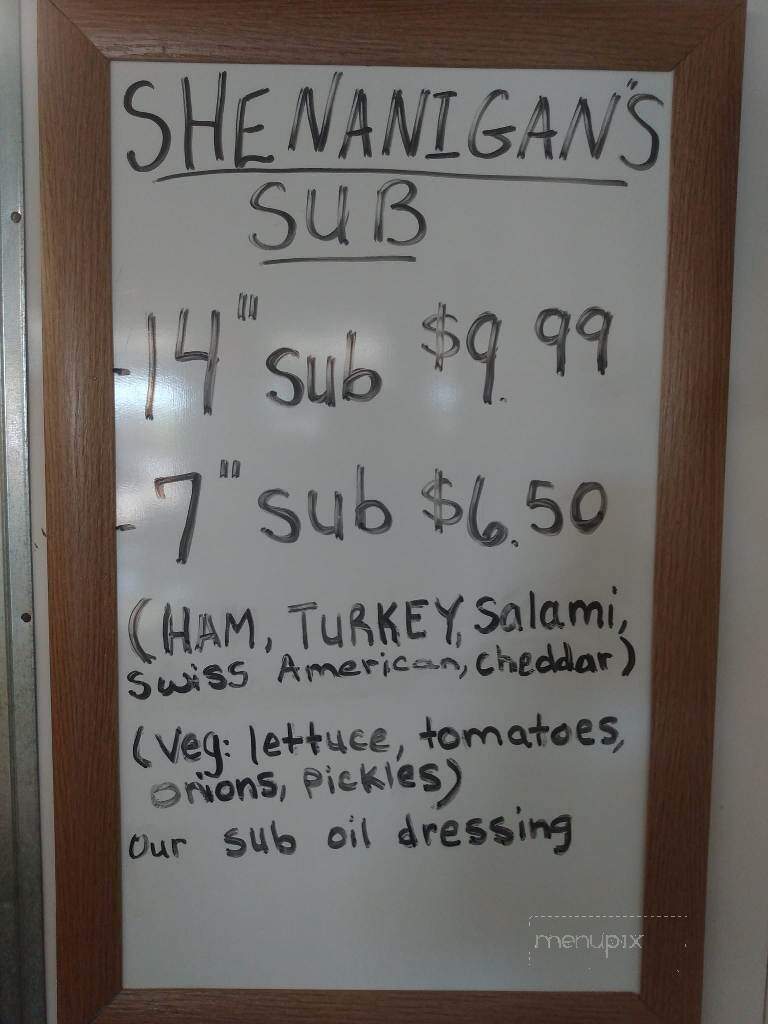 SHENANIGAN'S
SUB
-14''' sub $9.99
-7''' sub $6.50
(HAM, TURKEY, Salami,
Swiss American, cheddar)
(Veg: lettuce, tomatoes,
onions, pickles)
our sub oil dressing
menupix